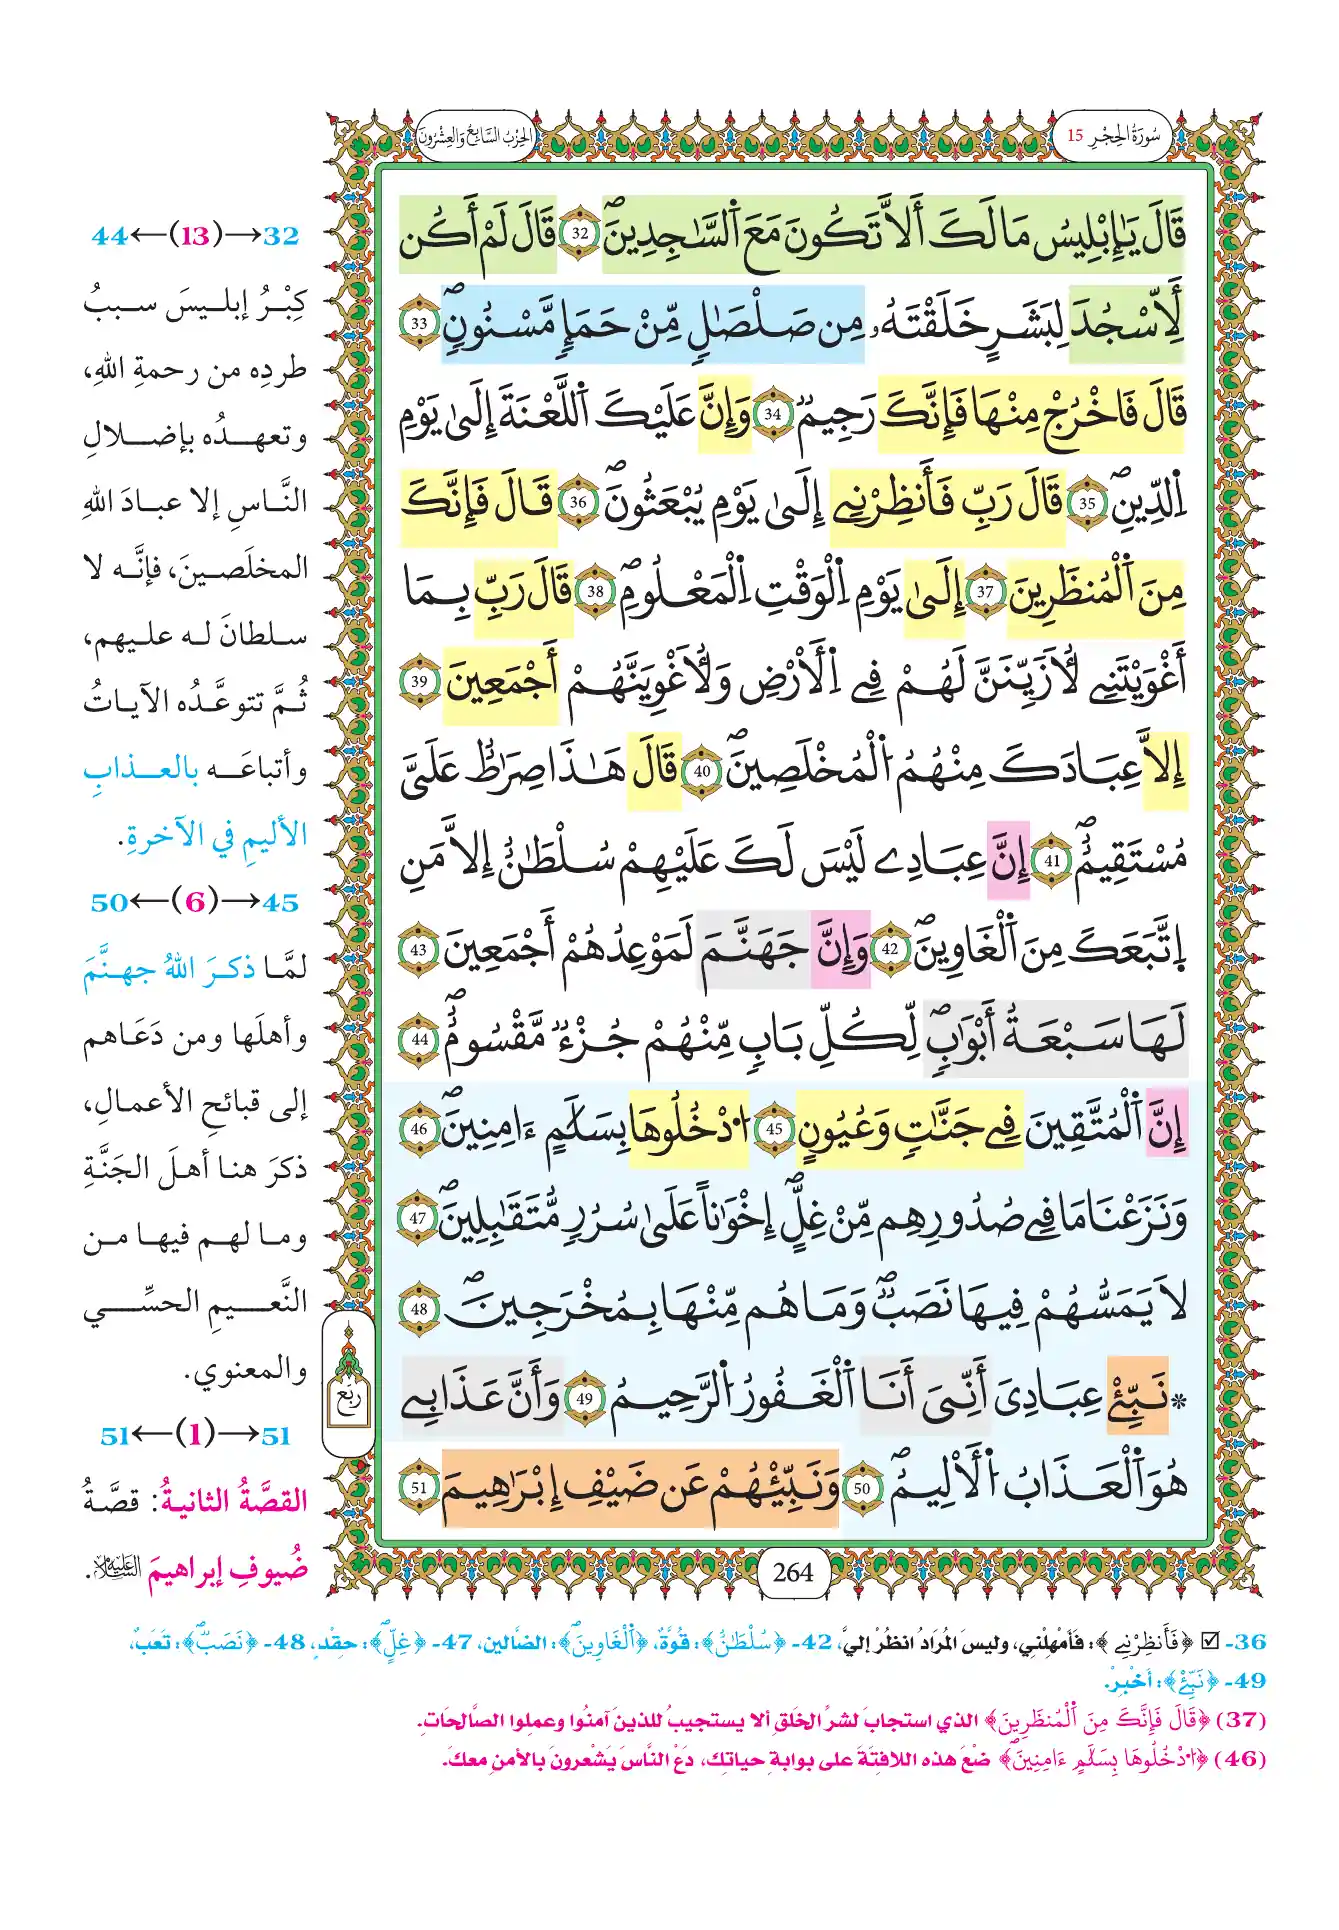 سُورَةُ الحِجْرِ 15
الحِزْبُ السَّابِعُ وَالعِشْرُونَ
قَالَ يَٰٓإِبْلِيسُ مَا لَكَ أَلَّا تَكُونَ مَعَ اَ۬لسَّٰجِدِينَۖ 32 قَالَ لَمْ أَكُن
لِّأَسْجُدَ لِبَشَرٍ خَلَقْتَهُۥ مِن صَلْصَٰلٍ مِّنْ حَمَإٍ مَّسْنُونٍۖ 33
قَالَ فَاخْرُجْ مِنْهَا فَإِنَّكَ رَجِيمٌ 34 وَإِنَّ عَلَيْكَ اَ۬للَّعْنَةَ إِلَىٰ يَوْمِ
اِ۬لدِّينِۖ 35 قَالَ رَبِّ فَأَنظِرْنِے إِلَىٰ يَوْمِ يُبْعَثُونَۖ 36 قَالَ فَإِنَّكَ
مِنَ اَ۬لْمُنظَرِينَ 37 إِلَىٰ يَوْمِ اِ۬لْوَقْتِ اِ۬لْمَعْلُومِۖ 38 قَالَ رَبِّ بِمَا
أَغْوَيْتَنِے لَأُزَيِّنَنَّ لَهُمْ فِے اِ۬لْأَرْضِ وَلَأُغْوِيَنَّهُمْ أَجْمَعِينَ 39
إِلَّا عِبَادَكَ مِنْهُمُ اُ۬لْمُخْلَصِينَۖ 40 قَالَ هَٰذَا صِرَٰطٌ عَلَيَّ
مُسْتَقِيمٌۖ 41 إِنَّ عِبَادِے لَيْسَ لَكَ عَلَيْهِمْ سُلْطَٰنٌ إِلَّا مَنِ
اِ۪تَّبَعَكَ مِنَ اَ۬لْغَاوِينَۖ 42 وَإِنَّ جَهَنَّمَ لَمَوْعِدُهُمْ أَجْمَعِينَ 43
لَهَا سَبْعَةُ أَبْوَٰبٍۖ لِّكُلِّ بَابٍ مِّنْهُمْ جُزْءٌ مَّقْسُومٌۖ 44
إِنَّ اَ۬لْمُتَّقِينَ فِے جَنَّٰتٍ وَعُيُونٍ 45 اُ۟دْخُلُوهَا بِسَلَٰمٍ ءَامِنِينَۖ 46
وَنَزَعْنَا مَا فِے صُدُورِهِم مِّنْ غِلٍّۖ إِخْوَٰناً عَلَىٰ سُرُرٍ مُّتَقَٰبِلِينَۖ 47
لَا يَمَسُّهُمْ فِيهَا نَصَبٌۖ وَمَا هُم مِّنْهَا بِمُخْرَجِينَۖ 48
* نَبِّۓْ عِبَادِيَ أَنِّيَ أَنَا اَ۬لْغَفُورُ اُ۬لرَّحِيمُ 49 وَأَنَّ عَذَابِے
هُوَ اَ۬لْعَذَابُ اُ۬لْأَلِيمُۖ 50 وَنَبِّئْهُمْ عَن ضَيْفِ إِبْرَٰهِيمَ 51
264
ربع
32→(13)←44
كِبْرُ إبليسَ سببُ
طردِه من رحمةِ اللهِ،
وتعهدُه بإضلالِ
النَّاسِ إلا عبادَ اللهِ
المخلَصينَ، فإنَّه لا
سلطانَ له عليهم،
ثُمَّ تتوعَّدُه الآياتُ
وأتباعَه بالعذابِ
الأليمِ في الآخرةِ.
45→(6)←50
لمَّا ذكرَ اللهُ جهنَّمَ
وأهلَها ومن دَعَاهم
إلى قبائحِ الأعمالِ،
ذكرَ هنا أهلَ الجَنَّةِ
وما لهم فيها من
النَّعيمِ الحسِّي
والمعنوي.
51→(1)←51
القصَّةُ الثانيةُ: قصَّةُ
ضُيوفِ إبراهيمَ عليه السلام.
36- ☑ ﴿فَأَنظِرْنِے﴾: فَأَمْهِلْنِي، وليسَ المُرَادُ انظُرْ إليَّ، 42- ﴿سُلْطَٰنٌ﴾: قُوَّةٌ، ﴿اَ۬لْغَاوِينَۖ﴾: الضَّالين، 47- ﴿غِلٍّۖ﴾: حِقْدٍ، 48- ﴿نَصَبٌۖ﴾: تَعَبٌ،
49- ﴿نَبِّۓْ﴾: أَخْبِرْ.
(37) ﴿قَالَ فَإِنَّكَ مِنَ اَ۬لْمُنظَرِينَ﴾ الذي استجابَ لشرِّ الخَلقِ ألا يستجيبُ للذينَ آمنُوا وعملوا الصَّالحَاتِ.
(46) ﴿اُ۟دْخُلُوهَا بِسَلَٰمٍ ءَامِنِينَۖ﴾ ضَعْ هذه اللافتَةَ على بوابةِ حياتِك، دَعْ النَّاسَ يَشْعُرونَ بالأمنِ معكَ.